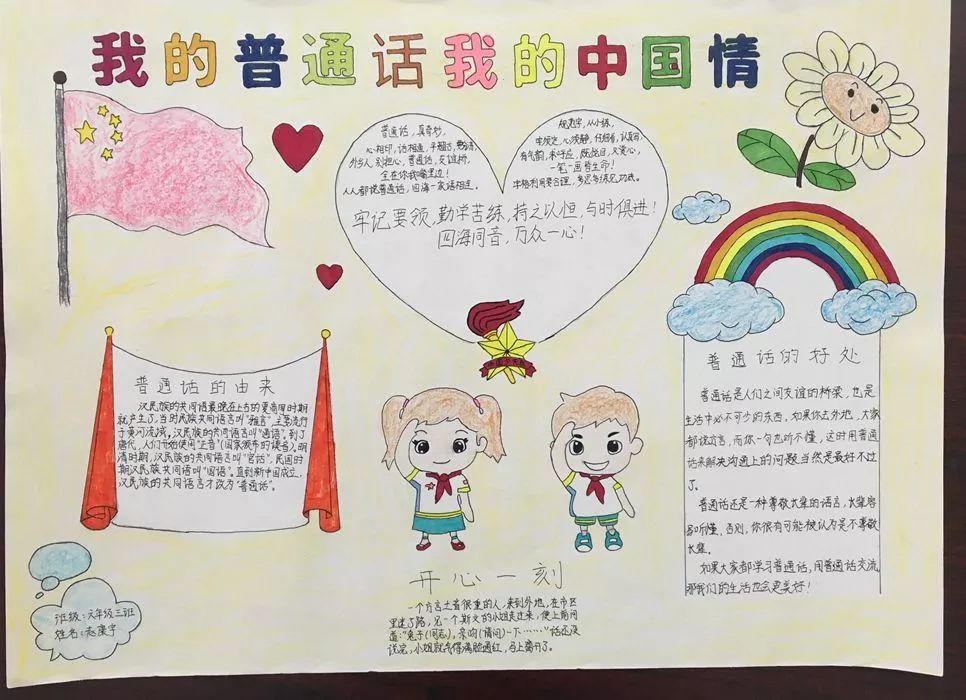 我的普通话我的中国情
普通话，真奇妙，
心相印，话相通，
外乡人，别担心，普通话，友谊桥，
全在你我嘴里边！
人人都说普通话，四海一家话相连。
规范字，从小练，
心须静，仔细看，认真写，
有气韵，
一笔一画皆生命！
牢记要领，勤学苦练，持之以恒，与时俱进！
四海同音，万众一心！
普通话的由来
汉民族的共同语最晚在上古的夏商周时期
就产生了，当时民族共同语言叫“雅言”，主要流行
于黄河流域，汉民族的共同语言叫“通语”。到了
唐代，人们开始使用“正音”（国家颁布的读音）。明
清时期，汉民族的共同语言叫“官话”，民国时
期汉民族共同语叫“国语”。直到新中国成立，
汉民族的共同语言才改为“普通话”。
普通话的好处
普通话是人们之间友谊的桥梁，也是
生活中必不可少的东西，如果你去外地，大家
都说方言，而你一句也听不懂，这时用普通
话来解决沟通上的问题当然是最好不过
了。
普通话还是一种尊敬长辈的语言，长辈容
易听懂，否则，你很有可能被认为是不尊敬
长辈。
如果大家都学习普通话，用普通话交流，
那我们的生活也会更美好！
开心一刻
一个方言之音很重的人，来到外地，在市区
里迷了路，见一个斯文的小姐走过来，便上前问
道：“兔子（同志），亲吻（请问）一下……”话还没
说完，小姐就气得满脸通红，马上离开了。
班级：六年级三班
姓名：赵康宇